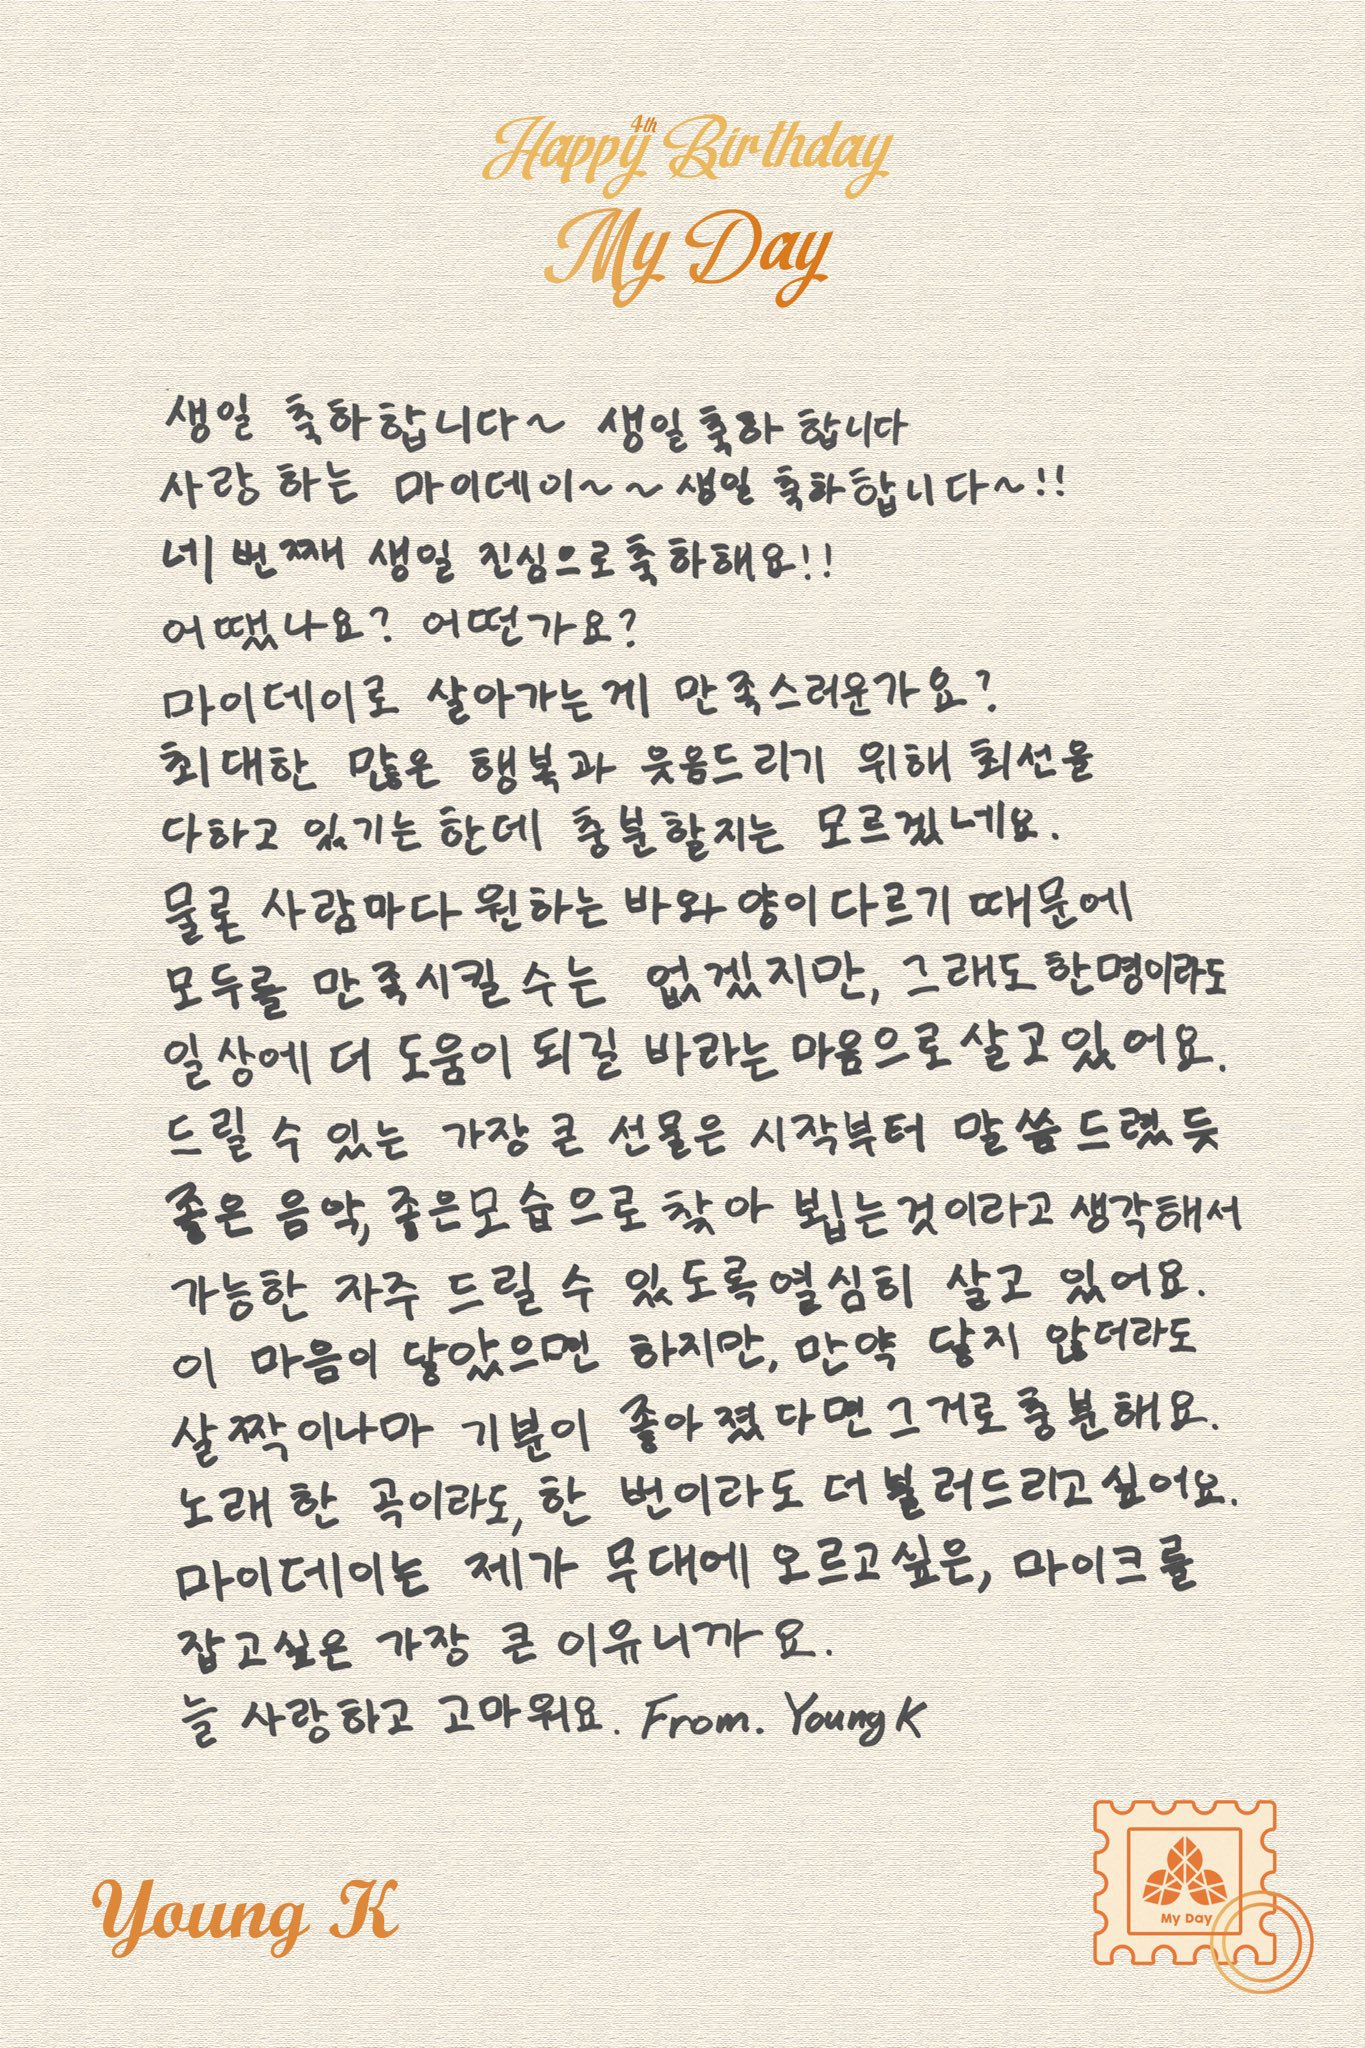 Happy 4th Birthday
My Day
생일 축하합니다~ 생일축하 합니다
사랑 하는 마이데이~~ 생일 축하합니다~!!
네 번째 생일 진심으로축하해요!!
어땠나요? 어떤가요?
마이데이로 살아가는게 만족스러운가요?
최대한 많은 행복과 웃음드리기 위해 최선을
다하고 있기는한데 충분할지는 모르겠네요.
물론 사람마다 원하는 바와 양이 다르기 때문에
모두를 만족시킬 수는 없겠지만, 그래도 한명이라도
일상에 더 도움이 되길 바라는 마음으로 살고있어요.
드릴 수 있는 가장 큰 선물은 시작부터 말씀드렸듯
좋은 음악, 좋은모습으로 찾아 뵙는것이라고 생각해서
가능한 자주 드릴 수 있도록 열심히 살고 있어요.
이 마음이 닿았으면 하지만, 만약 닿지 않더라도
살짝이나마 기분이 좋아졌다면 그거로 충분해요.
노래 한 곡이라도, 한 번이라도 더 불러드리고싶어요.
마이데이는 제가 무대에 오르고싶은, 마이크를
잡고싶은 가장 큰 이유니까요.
늘 사랑하고 고마워요. From. Young K
Young K
My Day